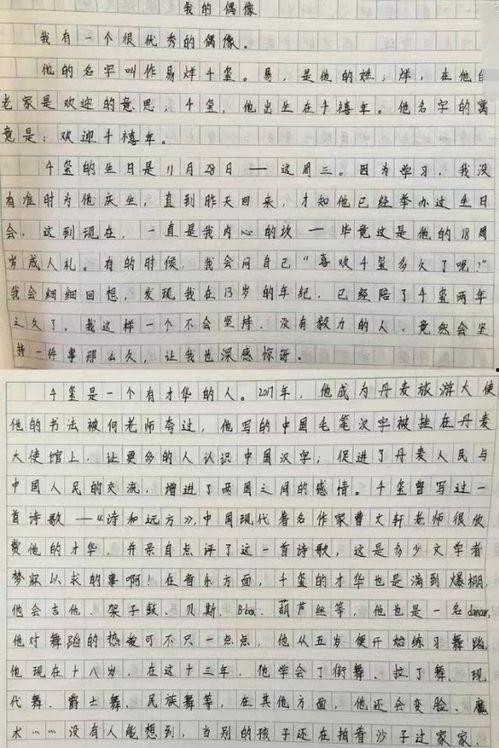 我的偶像
我有一个很优秀的偶像。
他的名字叫作易烊千玺。易，是他的姓；烊，在他的
老家是欢迎的意思；千玺，他出生在千禧年。他名字的寓
意是：欢迎千禧年。
千玺的生日是11月28日——这周三。因为学习，我没
有准时为他庆生，直到昨天回来，才知他已经举办过生日
会，这到现在，一直是我内心的坎——毕竟这是他的18周
岁成人礼。有的时候，我会问自己“喜欢千玺多久了呢？”
我会细细回想，发现我在13岁的年纪，已经陪了千玺两年
之久了，我这样一个不会坚持、没有毅力的人，竟然会坚
持一件事那么久，让我也深感惊讶。
千玺是一个有才华的人。2017年，他成为丹麦旅游大使
他的书法被何老师夸过，他写的中国毛笔汉字被挂在丹麦
大使馆上，让更多的人认识中国汉字；促进了丹麦人民与
中国人民的交流，增进了两国之间的感情。千玺曾写过一
首诗歌——《诗和远方》，中国现代著名作家曹文轩老师很欣
赏他的才华，并亲自点评了这一首诗歌，这是多少文学者
梦寐以求的事啊！在音乐方面，千玺的才华也是满到爆棚，
他会吉他、架子鼓、贝斯、B-box、葫芦丝等，他也是一名dancer，
他对舞蹈的热爱可不只一点点，他从五岁便开始练习舞蹈，
他现在十八岁，在这十三年，他学会了街舞、拉丁舞、现
代舞、爵士舞、民族舞等，在其他方面，他还会变脸、魔
术……没有人能想到，当别的孩子还在拍着沙子过家家，